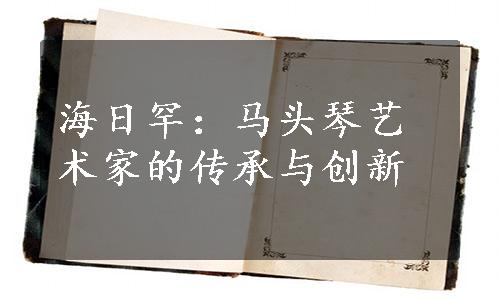 海日罕：马头琴艺
术家的传承与创新